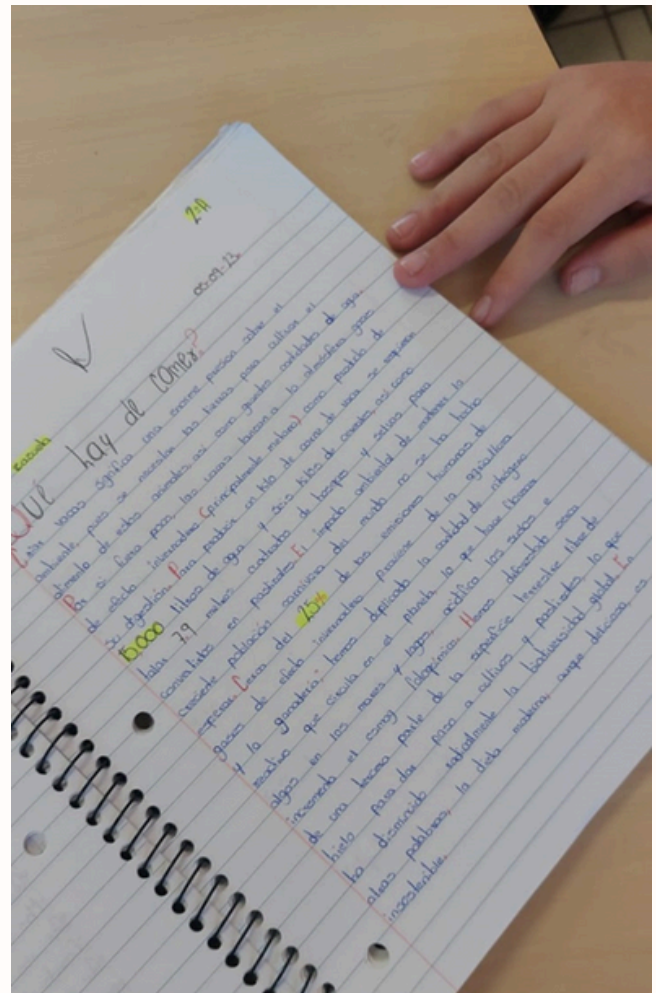 2ºA
06-09-23
Escuela
¿Qué hay de comer?
Criar vacas significa una enorme presión sobre el
ambiente, pues se necesitan las tierras para cultivar el
alimento de estos animales, así como grandes cantidades de agua.
Por si fuera poco, las vacas liberan a la atmósfera gases
de efecto invernadero (principalmente metano) como producto de
su digestión. Para producir un kilo de carne de vaca se requieren
15.000 litros de agua y seis kilos de cereales, así como
talar 7.9 metros cuadrados de bosques y selvas para
convertirlos en pastizales. El impacto ambiental de mantener la
creciente población carnívora del mundo no se ha hecho
esperar. Cerca del 25% de las emisiones humanas de
gases de efecto invernadero proviene de la agricultura
y la ganadería; hemos duplicado la cantidad de nitrógeno
reactivo que circula en el planeta lo que hace florecer
algas en los mares y lagos, acidifica los suelos e
incrementa el esmog fotoquímico. Hemos deforestado cerca
de una tercera parte de la superficie terrestre libre de
hielo para dar paso a cultivos y pastizales, lo que
ha disminuido radicalmente la biodiversidad global. En
otras palabras, la dieta moderna, aunque deliciosa, es
insostenible.